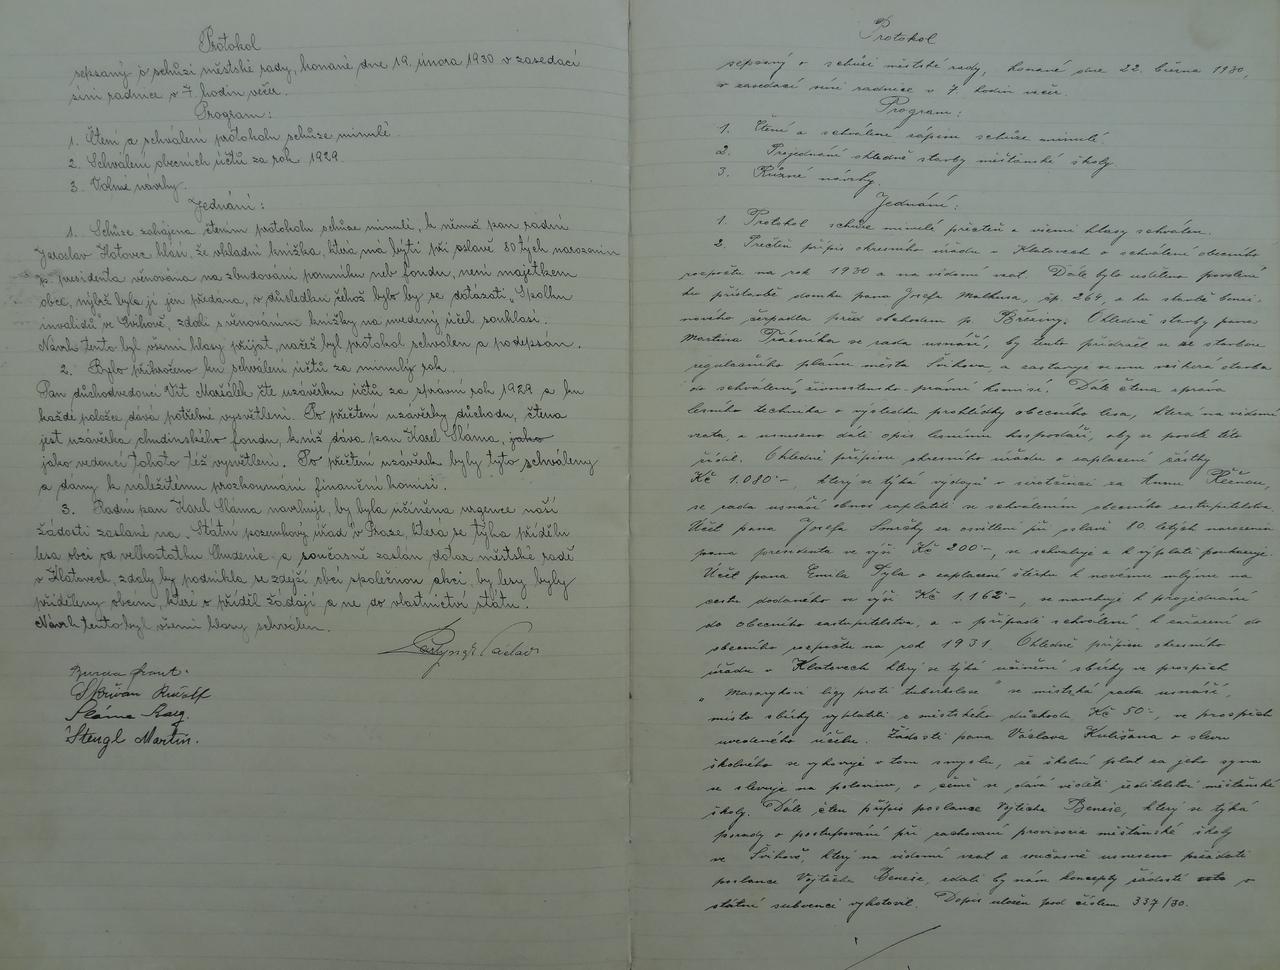 Protokol
sepsaný o schůzi městské rady, konané dne 19. února 1930 v zasedací
síni radnice v 7. hodin večer.
Program:
1. Čtení a schválení protokolu schůze minulé.
2. Schválení obecních účtů za rok 1929.
3. Volné návrhy.
Jednání:
1. Schůze zahájena čtením protokolu schůze minulé, k němuž pan radní
Jaroslav Hotovec hlásí, že vkladní knížka, která má býti při oslavě 80 tých narozenin
p. presidenta věnována na zbudování pomníku neb fondu, není majetkem
obce, nýbrž byla jí jen předána, v důsledku čehož bylo by se dotázati „Spolku
invalidů" ve Švihově, zdali s věnováním knížky na uvedený účel souhlasí.
Návrh tento byl všemi hlasy přijat, načež byl protokol schválen a podepsán.
2. Bylo přikročeno ku schválení účtů za minulý rok.
Pan důchodvedoucí Vít Maršálek čte uzávěrku účtů za správní rok 1929 a ku
každé položce dává potřebné vysvětlení. Po přečtení uzávěrky důchodu, čtena
jest uzávěrka chudinského fondu, k níž dává pan Karel Sláma, jako
jako vedoucí tohoto též vysvětlení. Po přečtení uzávěrek byly tyto schváleny
a dány k náležitému prozkoumání finanční komisi.
3. Radní pan Karel Sláma navrhuje, by byla učiněna urgence naší
žádosti zaslané na „Státní pozemkový úřad" v Praze, která se týká přídělu
lesa obci od velkostatku Chudenic a současně zaslán dotaz městské radě
v Klatovech, zdaly by podnikla se zdejší obcí společnou akci, by lesy byly
přiděleny obcím, které o příděl žádají a ne do vlastnictví státu.
Návrh tento byl všemi hlasy schválen.
Václav
Skřivan Rudolf
Sláma
Stengl Martin.
Protokol
sepsaný o schůzi městské rady, konané dne 22. března 1930,
v zasedací síni radnice v 7. hodin večer.
Program:
1. Čtení a schválení zápisu schůze minulé.
2. Projednání ohledně stavby měšťanské školy.
3. Různé návrhy.
Jednání:
1. Protokol schůze minulé přečten a všemi hlasy schválen.
2. Přečten přípis okresního úřadu v Klatovech o schválení obecního
rozpočtu na rok 1930 a na vědomí vzat. Dále bylo uděleno povolení
ku přístavbě domku pana Josefa čp. 264, a ku stavbě benzi-
nového čerpadla před obchodem p. Březiny. Ohledně stavby pana
Martina se rada usnáší, by tento přidržel se se stavbou
regulačního plánu města Švihova, a zastavuje se mu veškerá stavba
do schválení, živnostensko-právní komisí. Dále čtena zpráva
lesního technika o výsledku prohlídky obecního lesa, která na vědomí
vzata, a usneseno dáti opis lesnímu hospodáři, aby se podle této
řídil. Ohledně přípisu okresního úřadu o zaplacení částky
Kč 1.080·-, který se týká výdajů v sirotčinci za Annu
se rada usnáší obnos zaplatiti se schválením obecního zastupitelstva.
Účet pana Josefa za osvětlení při oslavě 80. letých narozenin
pana presidenta ve výši Kč 200·-, se schvaluje a k výplatě poukazuje.
Účet pana Emila Tyla o zaplacení štěrku k novému mlýnu na
cestu dodaného ve výši Kč 1.162·-, se navrhuje k projednání
do obecního zastupitelstva, a v případě schválení k zařazení do
obecního rozpočtu na rok 1931. Ohledně přípisu okresního
úřadu v Klatovech který se týká učinění sbírky ve prospěch
„Masarykovi ligy proti tuberkulose" se městská rada usnáší,
místo sbírky vyplatiti z městského důchodu Kč 50·-, ve prospěch
uvedeného účelu. Žádosti pana Václava Kulišana o slevu
školného se vyhovuje v tom smyslu, že školní plat za jeho syna
se slevuje na polovinu, o čemž se dává věděti ředitelství měšťanské
školy. Dále čten přípis poslance Vojtěcha Beneše, který se týká
porady o postupování při zachování provisoria měšťanské školy
ve Švihově, který na vědomí vzat a současně usneseno požádati
poslance Vojtěcha Beneše, zdali by nám koncepty žádosti o
státní subvenci vyhotovil. Dopis uložen pod číslem 337/30.